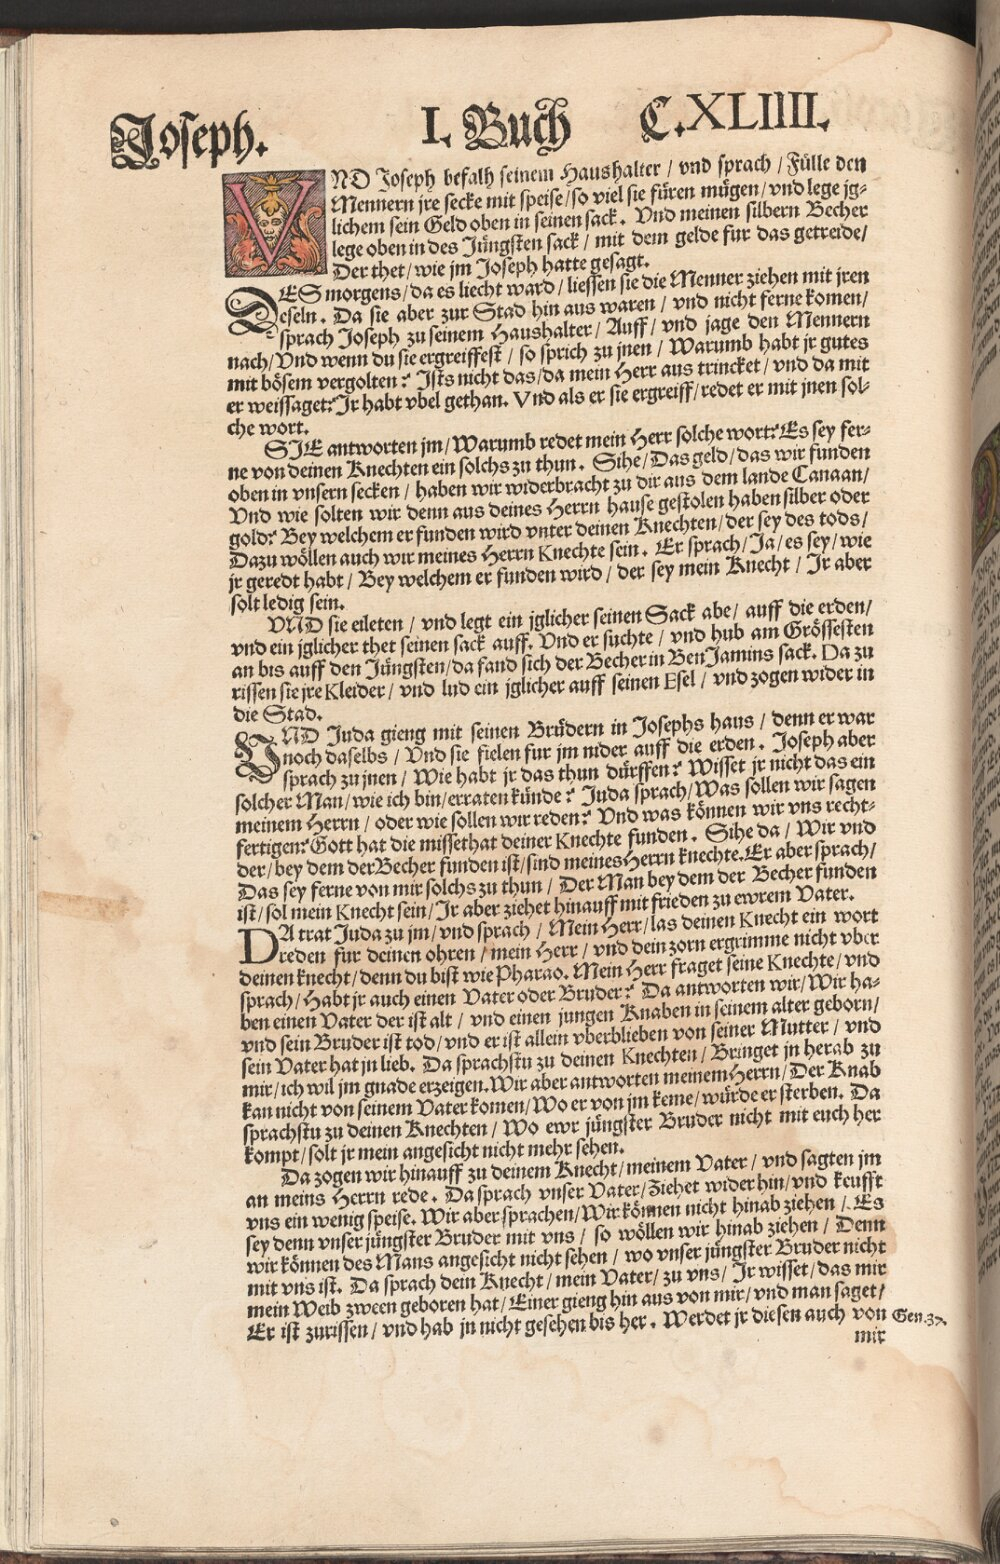 Joseph. I. Buch C. XLIIII.
VND Joseph befalh seinem Haushalter / vnd sprach / Fülle den
Mennern jre secke mit speise / so viel sie füren mügen / vnd lege jg-
lichem sein Geld oben in seinen sack. Vnd meinen silbern Becher
lege oben in des Jüngsten sack / mit dem gelde fur das getreide /
Der thet / wie jm Joseph hatte gesagt.
DES morgens / da es liecht ward / liessen sie die Menner ziehen mit jren
eseln. Da sie aber zur Stad hin aus waren / vnd nicht ferne komen /
sprach Joseph zu seinem Haushalter / Auff / vnd jage den Mennern
nach / Vnd wenn du sie ergreiffest / so sprich zu jnen / Warumb habt jr gutes
mit bösem vergolten? Ists nicht das / da mein Herr aus trincket / vnd da mit
er weissaget? Jr habt vbel gethan. Vnd als er sie ergreiff / redet er mit jnen sol-
che wort.
SIE antworten jm / Warumb redet mein Herr solche wort? Es sey fer-
ne von deinen Knechten ein solchs zu thun. Sihe / Das geld / das wir funden
oben in vnsern secken / haben wir widerbracht zu dir aus dem lande Canaan /
Vnd wie solten wir denn aus deines Herrn hause gestolen haben silber oder
gold? Bey welchem er funden wird vnter deinen Knechten / der sey des tods /
Dazu wöllen auch wir meines Herrn Knechte sein. Er sprach / Ja / es sey / wie
jr geredt habt / Bey welchem er funden wird / der sey mein Knecht / Jr aber
solt ledig sein.
VND sie eileten / vnd legt ein jglicher seinen Sack abe / auff die erden /
vnd ein jglicher thet seinen sack auff. Vnd er suchte / vnd hub am Grössesten
an bis auff den Jüngsten / da fand sich der Becher in BenJamins sack. Da zu
rissen sie jre Kleider / vnd lud ein jglicher auff seinen Esel / vnd zogen wider in
die Stad.
VND Juda gieng mit seinen Brüdern in Josephs haus / denn er war
noch daselbs / Vnd sie fielen fur jm nider auff die erden. Joseph aber
sprach zu jnen / Wie habt jr das thun dürffen? Wisset jr nicht das ein
solcher Man / wie ich bin / erraten künde? Juda sprach / Was sollen wir sagen
meinem Herrn / oder wie sollen wir reden? Vnd was können wir vns recht-
fertigen? Gott hat die missethat deiner Knechte funden. Sihe da / Wir vnd
der / bey dem der Becher funden ist / sind meines Herrn knechte. Er aber sprach /
Das sey ferne von mir solchs zu thun / Der Man bey dem der Becher funden
ist / sol mein Knecht sein / Jr aber ziehet hinauff mit frieden zu ewrem Vater.
DA trat Juda zu jm / vnd sprach / Mein Herr / las deinen Knecht ein wort
reden fur deinen ohren / mein Herr / vnd dein zorn ergrimme nicht vber
deinen knecht / denn du bist wie Pharao. Mein Herr fraget seine Knechte / vnd
sprach / Habt jr auch einen Vater oder Bruder? Da antworten wir / Wir ha-
ben einen Vater der ist alt / vnd einen jungen Knaben in seinem alter geborn /
vnd sein Bruder ist tod / vnd er ist allein vberblieben von seiner Mutter / vnd
sein Vater hat jn lieb. Da sprachstu zu deinen Knechten / Bringet jn herab zu
mir / ich wil jm gnade erzeigen. Wir aber antworten meinem Herrn / Der Knab
kan nicht von seinem Vater komen / Wo er von jm keme / würde er sterben. Da
sprachstu zu deinen Knechten / Wo ewr jüngster Bruder nicht mit euch her
kompt / solt jr mein angesicht nicht mehr sehen.
Da zogen wir hinauff zu deinem Knecht / meinem Vater / vnd sagten jm
an meins Herrn rede. Da sprach vnser Vater / Ziehet wider hin / vnd keufft
vns ein wenig speise. Wir aber sprachen / Wir können nicht hinab ziehen / Es
sey denn vnser jüngster Bruder mit vns / so wöllen wir hinab ziehen / Denn
wir können des Mans angesicht nicht sehen / wo vnser jüngster Bruder nicht
mit vns ist. Da sprach dein Knecht / mein Vater / zu vns / Jr wisset / das mir
mein Weib zween geboren hat / Einer gieng hin aus von mir / vnd man saget /
Er ist zurissen / vnd hab jn nicht gesehen bis her. Werdet jr diesen auch von Gen. 37.
mir